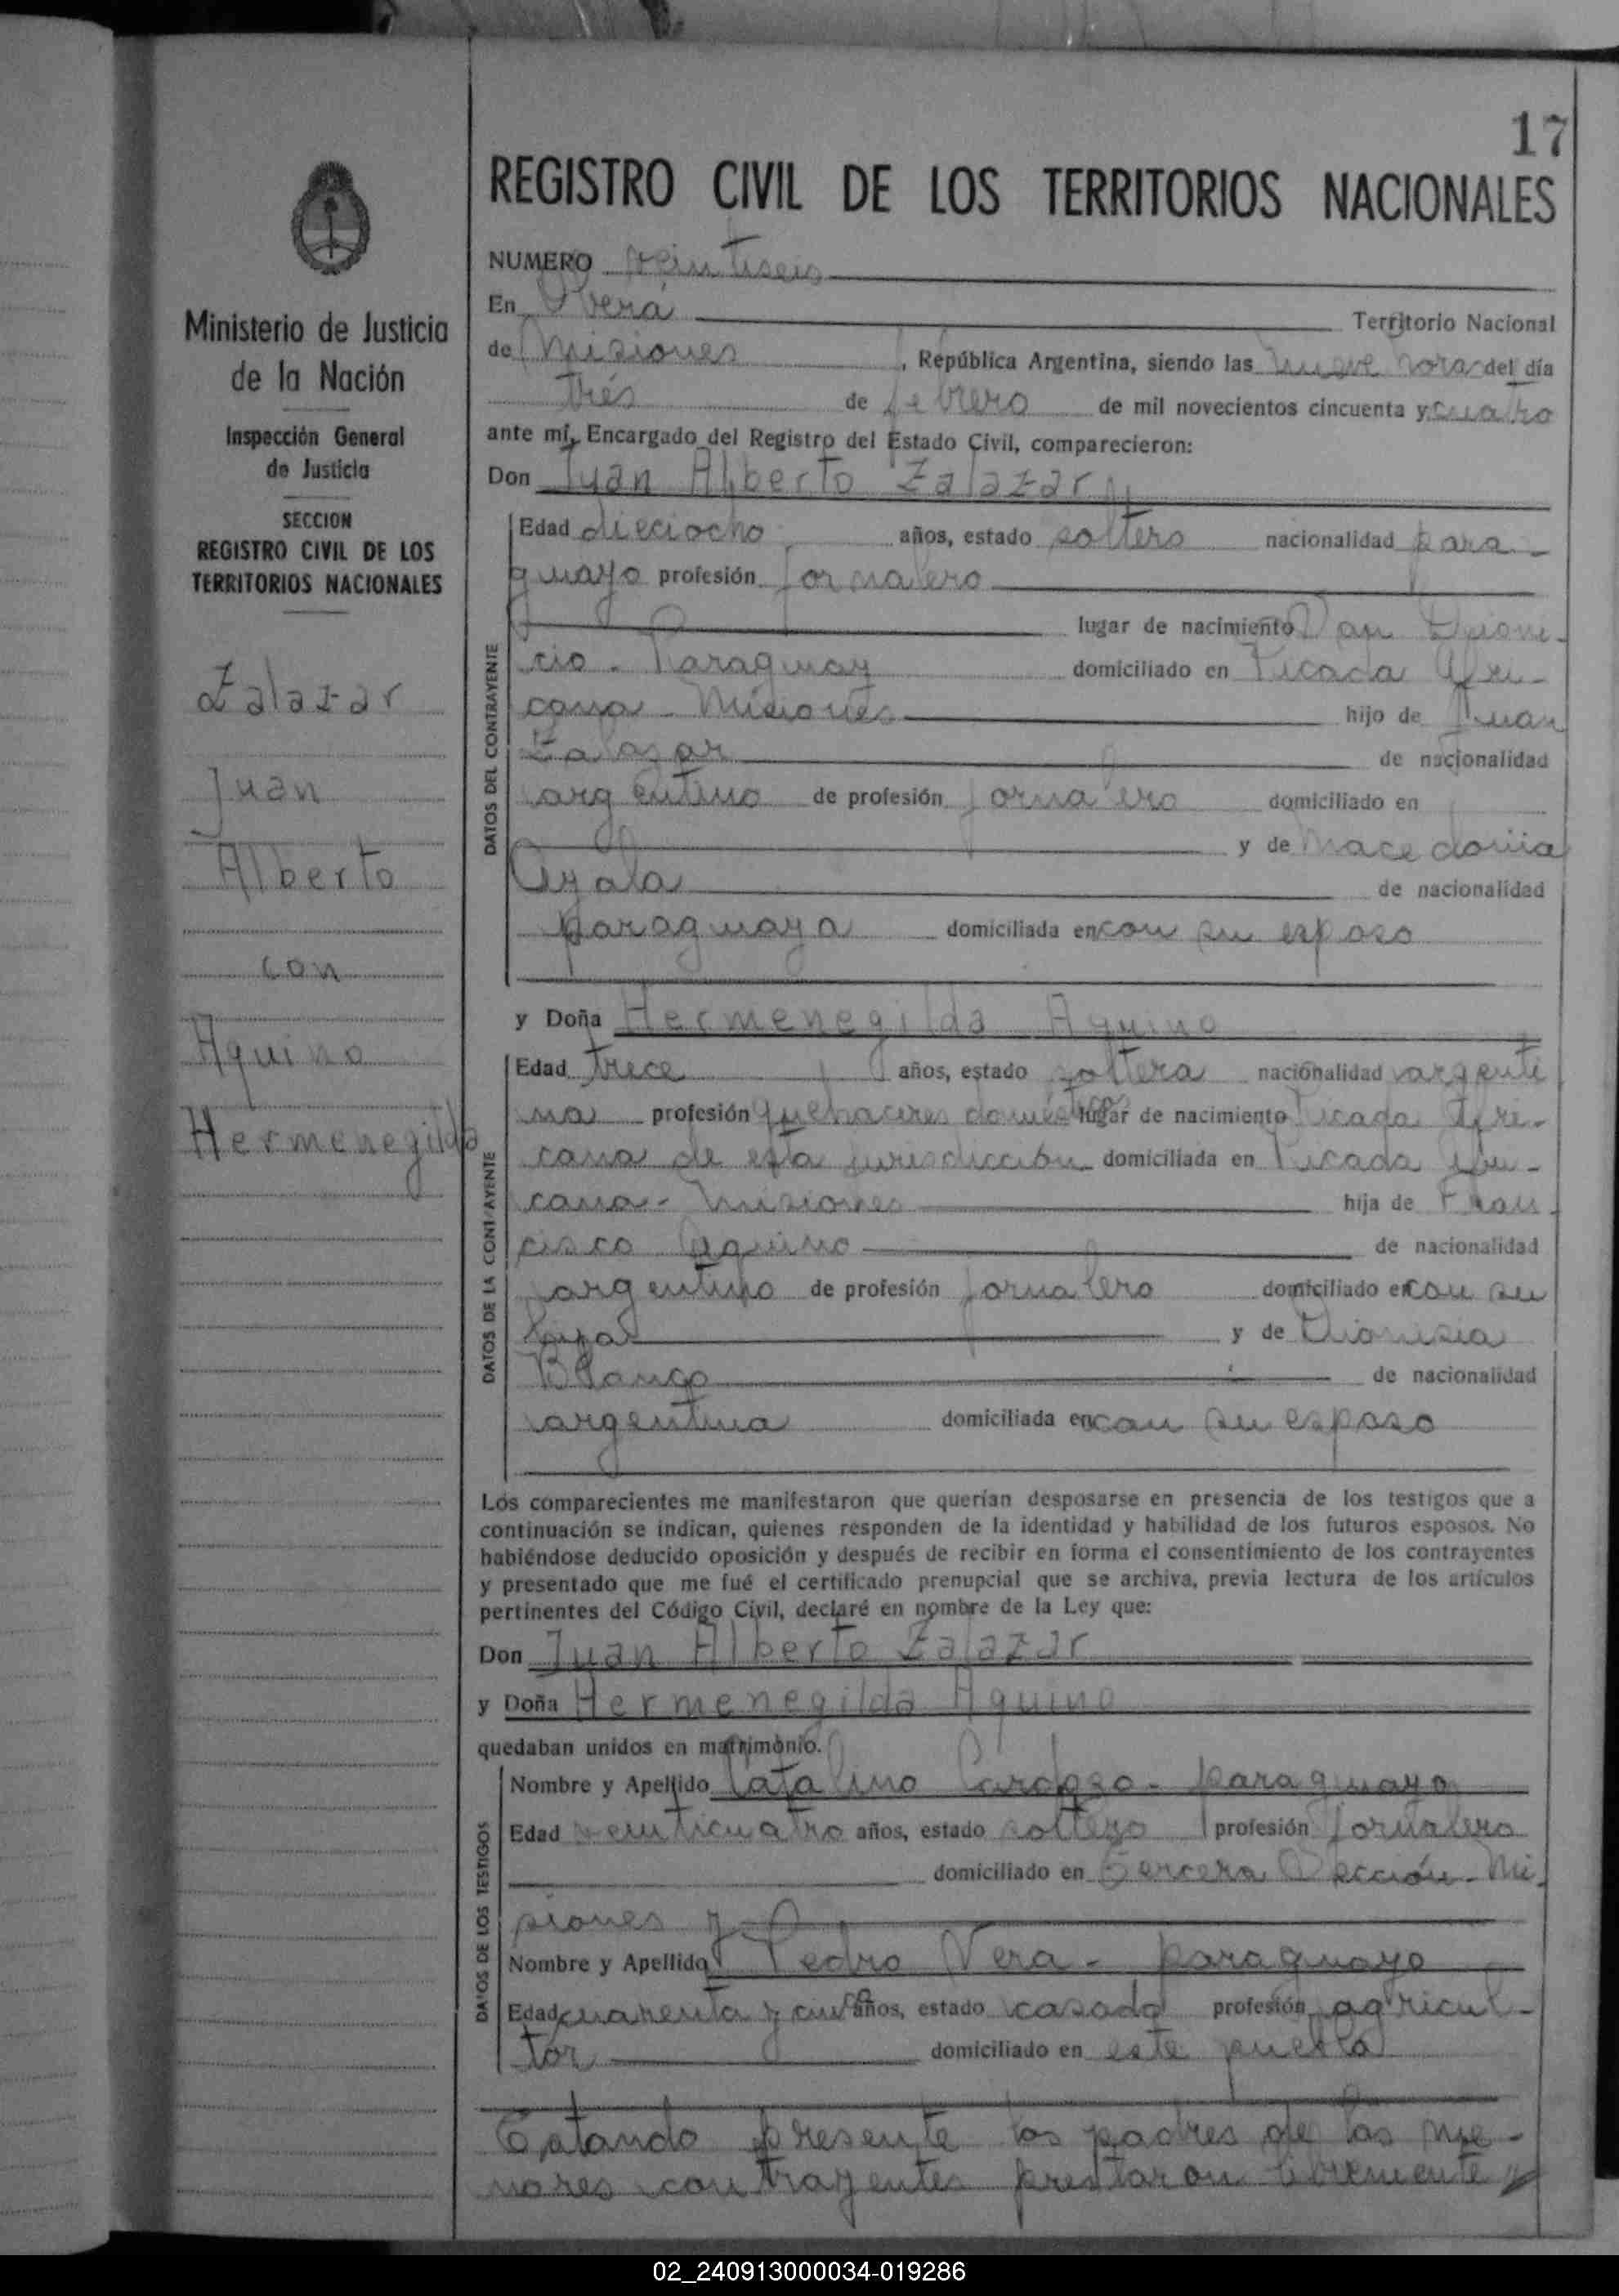 17
REGISTRO CIVIL DE LOS TERRITORIOS NACIONALES
Ministerio de Justicia
de la Nación
Inspección General
de Justicia
SECCION
REGISTRO CIVIL DE LOS
TERRITORIOS NACIONALES
Zalazar
Juan
Alberto
con
Aquino
Hermenegilda
NUMERO veintiseis
En Oberá Territorio Nacional
de Misiones , República Argentina, siendo las nueve horas del día
trés de febrero de mil novecientos cincuenta y cuatro
ante mí, Encargado del Registro del Estado Civil, comparecieron:
Don Juan Alberto Zalazar
DATOS DEL CONTRAYENTE
Edad dieciocho años, estado soltero nacionalidad para-
guayo profesión jornalero
lugar de nacimiento San Dioni-
cio - Paraguay domiciliado en Picada Afri-
cana - Misiones hijo de Juan
Zalazar de nacionalidad
argentino de profesión jornalero domiciliado en
y de Macedonia
Ayala de nacionalidad
paraguaya domiciliada en con su esposo
y Doña Hermenegilda Aquino
DATOS DE LA CONTRAYENTE
Edad trece años, estado soltera nacionalidad argenti
na profesión quehaceres domésticos lugar de nacimiento Picada Afri-
cana de esta jurisdicción domiciliada en Picada Afri-
cana - Misiones hija de Fran
cisco Aquino de nacionalidad
argentino de profesión jornalero domiciliado en con su
hija y de Dionisia
Blanco de nacionalidad
argentina domiciliada en con su esposo
Los comparecientes me manifestaron que querían desposarse en presencia de los testigos que a
continuación se indican, quienes responden de la identidad y habilidad de los futuros esposos. No
habiéndose deducido oposición y después de recibir en forma el consentimiento de los contrayentes
y presentado que me fué el certificado prenupcial que se archiva, previa lectura de los artículos
pertinentes del Código Civil, declaré en nombre de la Ley que:
Don Juan Alberto Zalazar
y Doña Hermenegilda Aquino
quedaban unidos en matrimonio.
DATOS DE LOS TESTIGOS
Nombre y Apellido Catalino Cardozo - paraguayo
Edad veinticuatro años, estado soltero profesión jornalero
domiciliado en Tercera Sección - Mi-
siones y
Nombre y Apellido Pedro Vera - paraguayo
Edad cuarenta y años, estado casado profesión agricul-
tor domiciliado en este pueblo
Estando presente los padres de los me-
nores contrayentes prestaron libremente
02_240913000034-019286